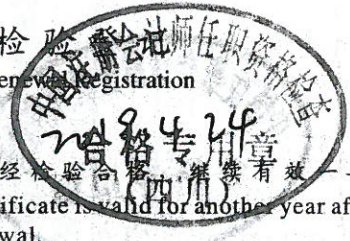 检 验 登记
enewal Registration
中国注册会计师任职资格检查
4 24
合格专用章
经检验合格，继续有效一
ificate is valid for another year af
wal.